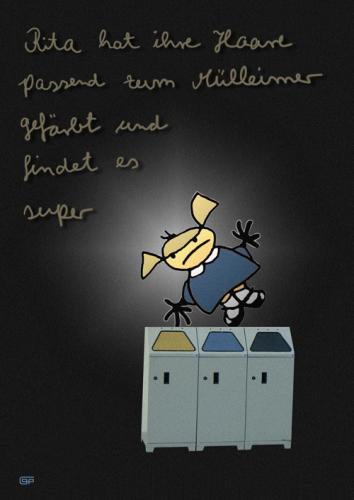 Rita hat ihre Haare
passend zum Mülleimer
gefärbt und
findet es
super